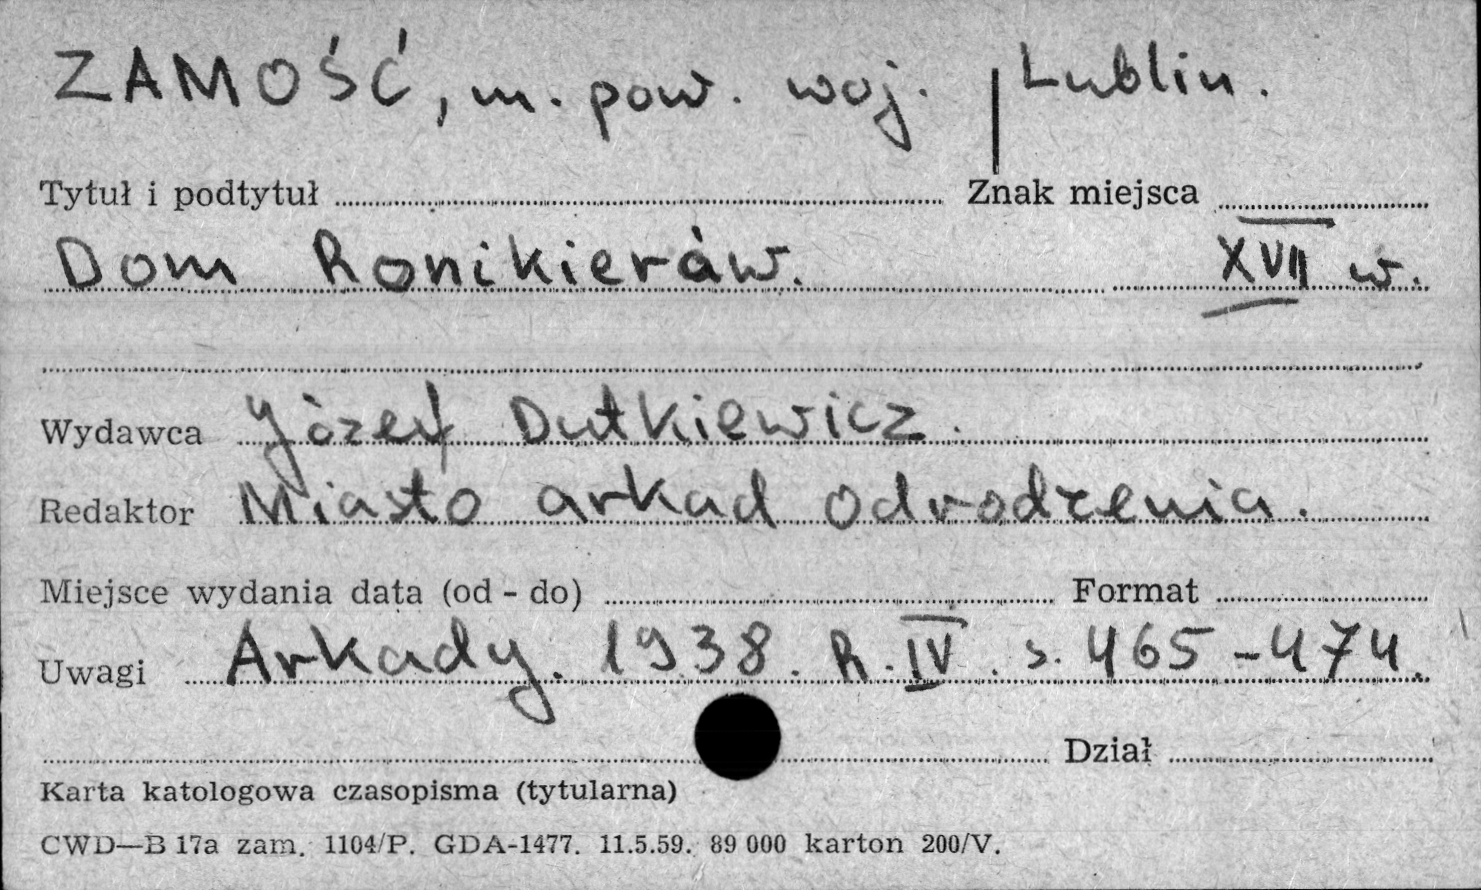 ZAMOŚĆ, m. pow. woj. Lublin.
Tytuł i podtytuł Znak miejsca
Dom Ronikierów. XVII w.
Wydawca Józef Dutkiewicz.
Redaktor Miasto arkad odrodzenia.
Miejsce wydania data (od - do) Format
Uwagi Arkady. 1938. R. IV. s. 465-474.
Dział
Karta katologowa czasopisma (tytularna)
CWD—B 17a zam. 1104/P. GDA-1477. 11.5.59. 89 000 karton 200/V.